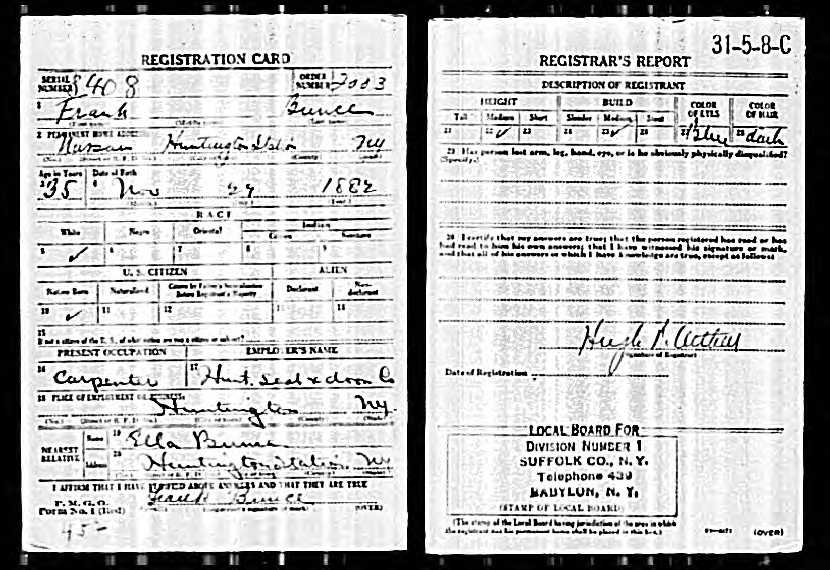 REGISTRATION CARD
SERIAL NUMBER 8408 ORDER NUMBER 2003
1 Frank Bunce
2 PERMANENT HOME ADDRESS
Nassau Huntington Station NY
Age in Years Date of Birth
3 35 4 Nov 29 1882
RACE
White Negro Oriental Indian
5 ✓ 6 7 8 9
U. S. CITIZEN ALIEN
Native Born Naturalized Citizen by Father's Naturalization Before Registrant's Majority Declarant Non-declarant
10 ✓ 11 12 13 14
15
If not a citizen of the U. S., of what nation are you a citizen or subject?
PRESENT OCCUPATION EMPLOYER'S NAME
16 Carpenter 17 Hunt. Co
18 PLACE OF EMPLOYMENT OR BUSINESS:
Huntington NY
NEAREST RELATIVE Name 19 Ella Bunce
Address 20 Huntington Station NY
I AFFIRM THAT I HAVE VERIFIED ABOVE ANSWERS AND THAT THEY ARE TRUE
P. M. G. O.
Form No. 1 (Red) Frank Bunce (OVER)
45-
31-5-8-C
REGISTRAR'S REPORT
DESCRIPTION OF REGISTRANT
HEIGHT BUILD COLOR OF EYES COLOR OF HAIR
Tall Medium Short Slender Medium Stout
21 22 ✓ 23 24 25 ✓ 26 27 Blue 28 dark
29 Has person lost arm, leg, hand, eye, or is he obviously physically disqualified?
(Specify)
30 I certify that my answers are true; that the person registered has read or has
had read to him his own answers; that I have witnessed his signature or mark,
and that all of his answers of which I have knowledge are true, except as follows:
Hugh
(Signature of Registrar)
Date of Registration
LOCAL BOARD FOR
DIVISION NUMBER 1
SUFFOLK CO., N. Y.
Telephone 439
BABYLON, N. Y.
(STAMP OF LOCAL BOARD)
(The stamp of the Local Board having jurisdiction of the area in which
the registrant has his permanent home shall be placed in this box.)
(OVER)